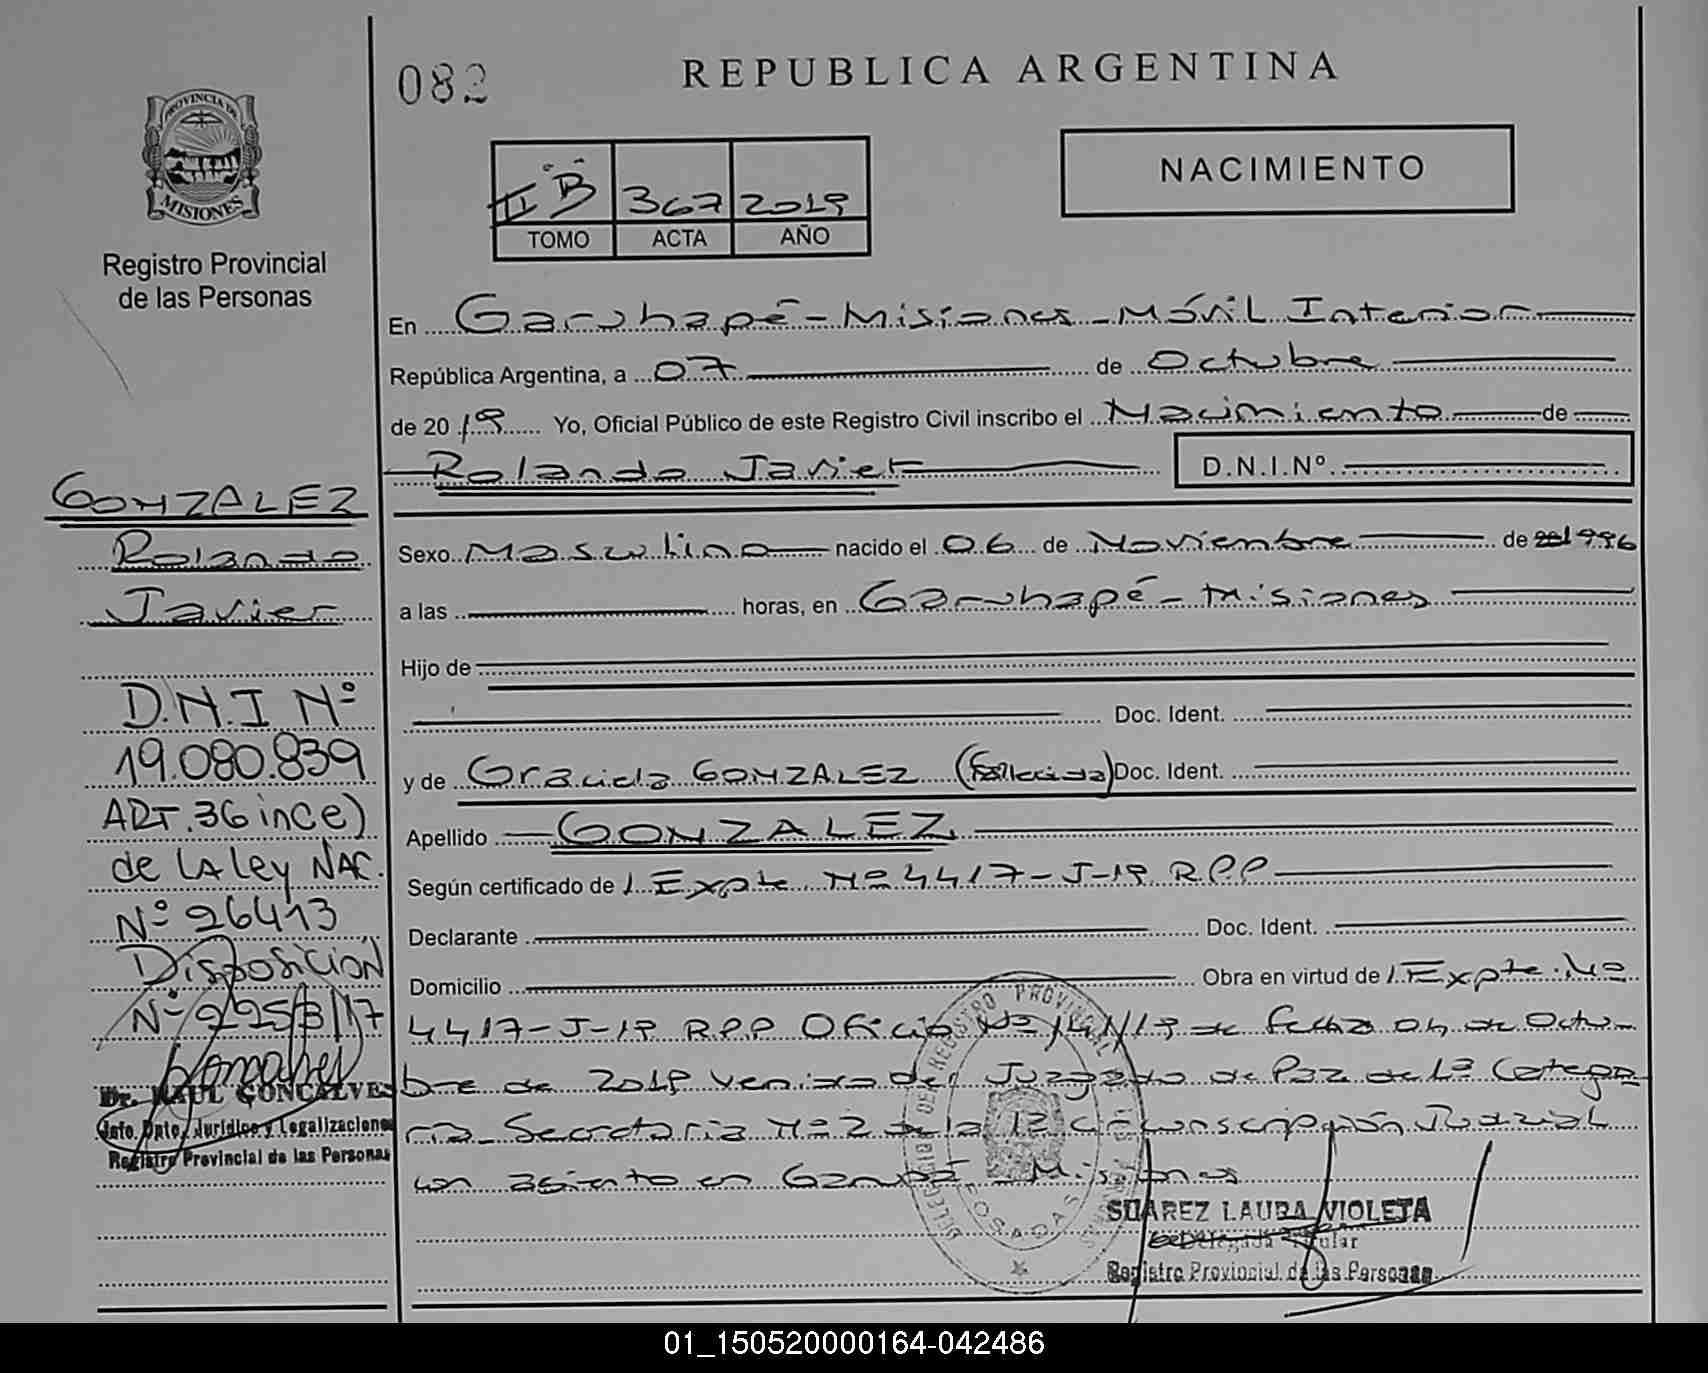 082
REPUBLICA ARGENTINA
PROVINCIA DE
MISIONES
Registro Provincial
de las Personas
II "B" 367 2019
TOMO ACTA AÑO
NACIMIENTO
En Garuhapé - Misiones - Móvil Interior
República Argentina, a 07 de Octubre
de 2019 Yo, Oficial Público de este Registro Civil inscribo el Nacimiento de
Rolando Javier D.N.I.Nº
GONZALEZ
Rolando
Javier
Sexo Masculino nacido el 06 de Noviembre de 1996
a las horas, en Garuhapé - Misiones
Hijo de
Doc. Ident.
y de Graciela GONZALEZ (fallecida) Doc. Ident.
Apellido GONZALEZ
Según certificado de Expte Nº 4417-J-19 RPP
Declarante Doc. Ident.
Domicilio Obra en virtud de Expte. Nº
4417-J-19 RPP Oficio Nº 141/19 de fecha 04 de Octu-
bre de 2019 venido del Juzgado de Paz de 1ª Catego-
ria Secretaria Nº 2 de la Circunscripción Judicial
con asiento en Misiones
D.N.I Nº
19.080.839
ART. 36 inc e)
de LA Ley NAC.
Nº 26413
Disposición
Nº 225
Dr. RAUL GONCALVES
Dpto. Jurídico y Legalizaciones
Registro Provincial de las Personas
SUAREZ LAURA VIOLETA
Delegada Titular
Registro Provincial de las Personas
REGISTRO PROVINCIAL
POSADAS
01_150520000164-042486